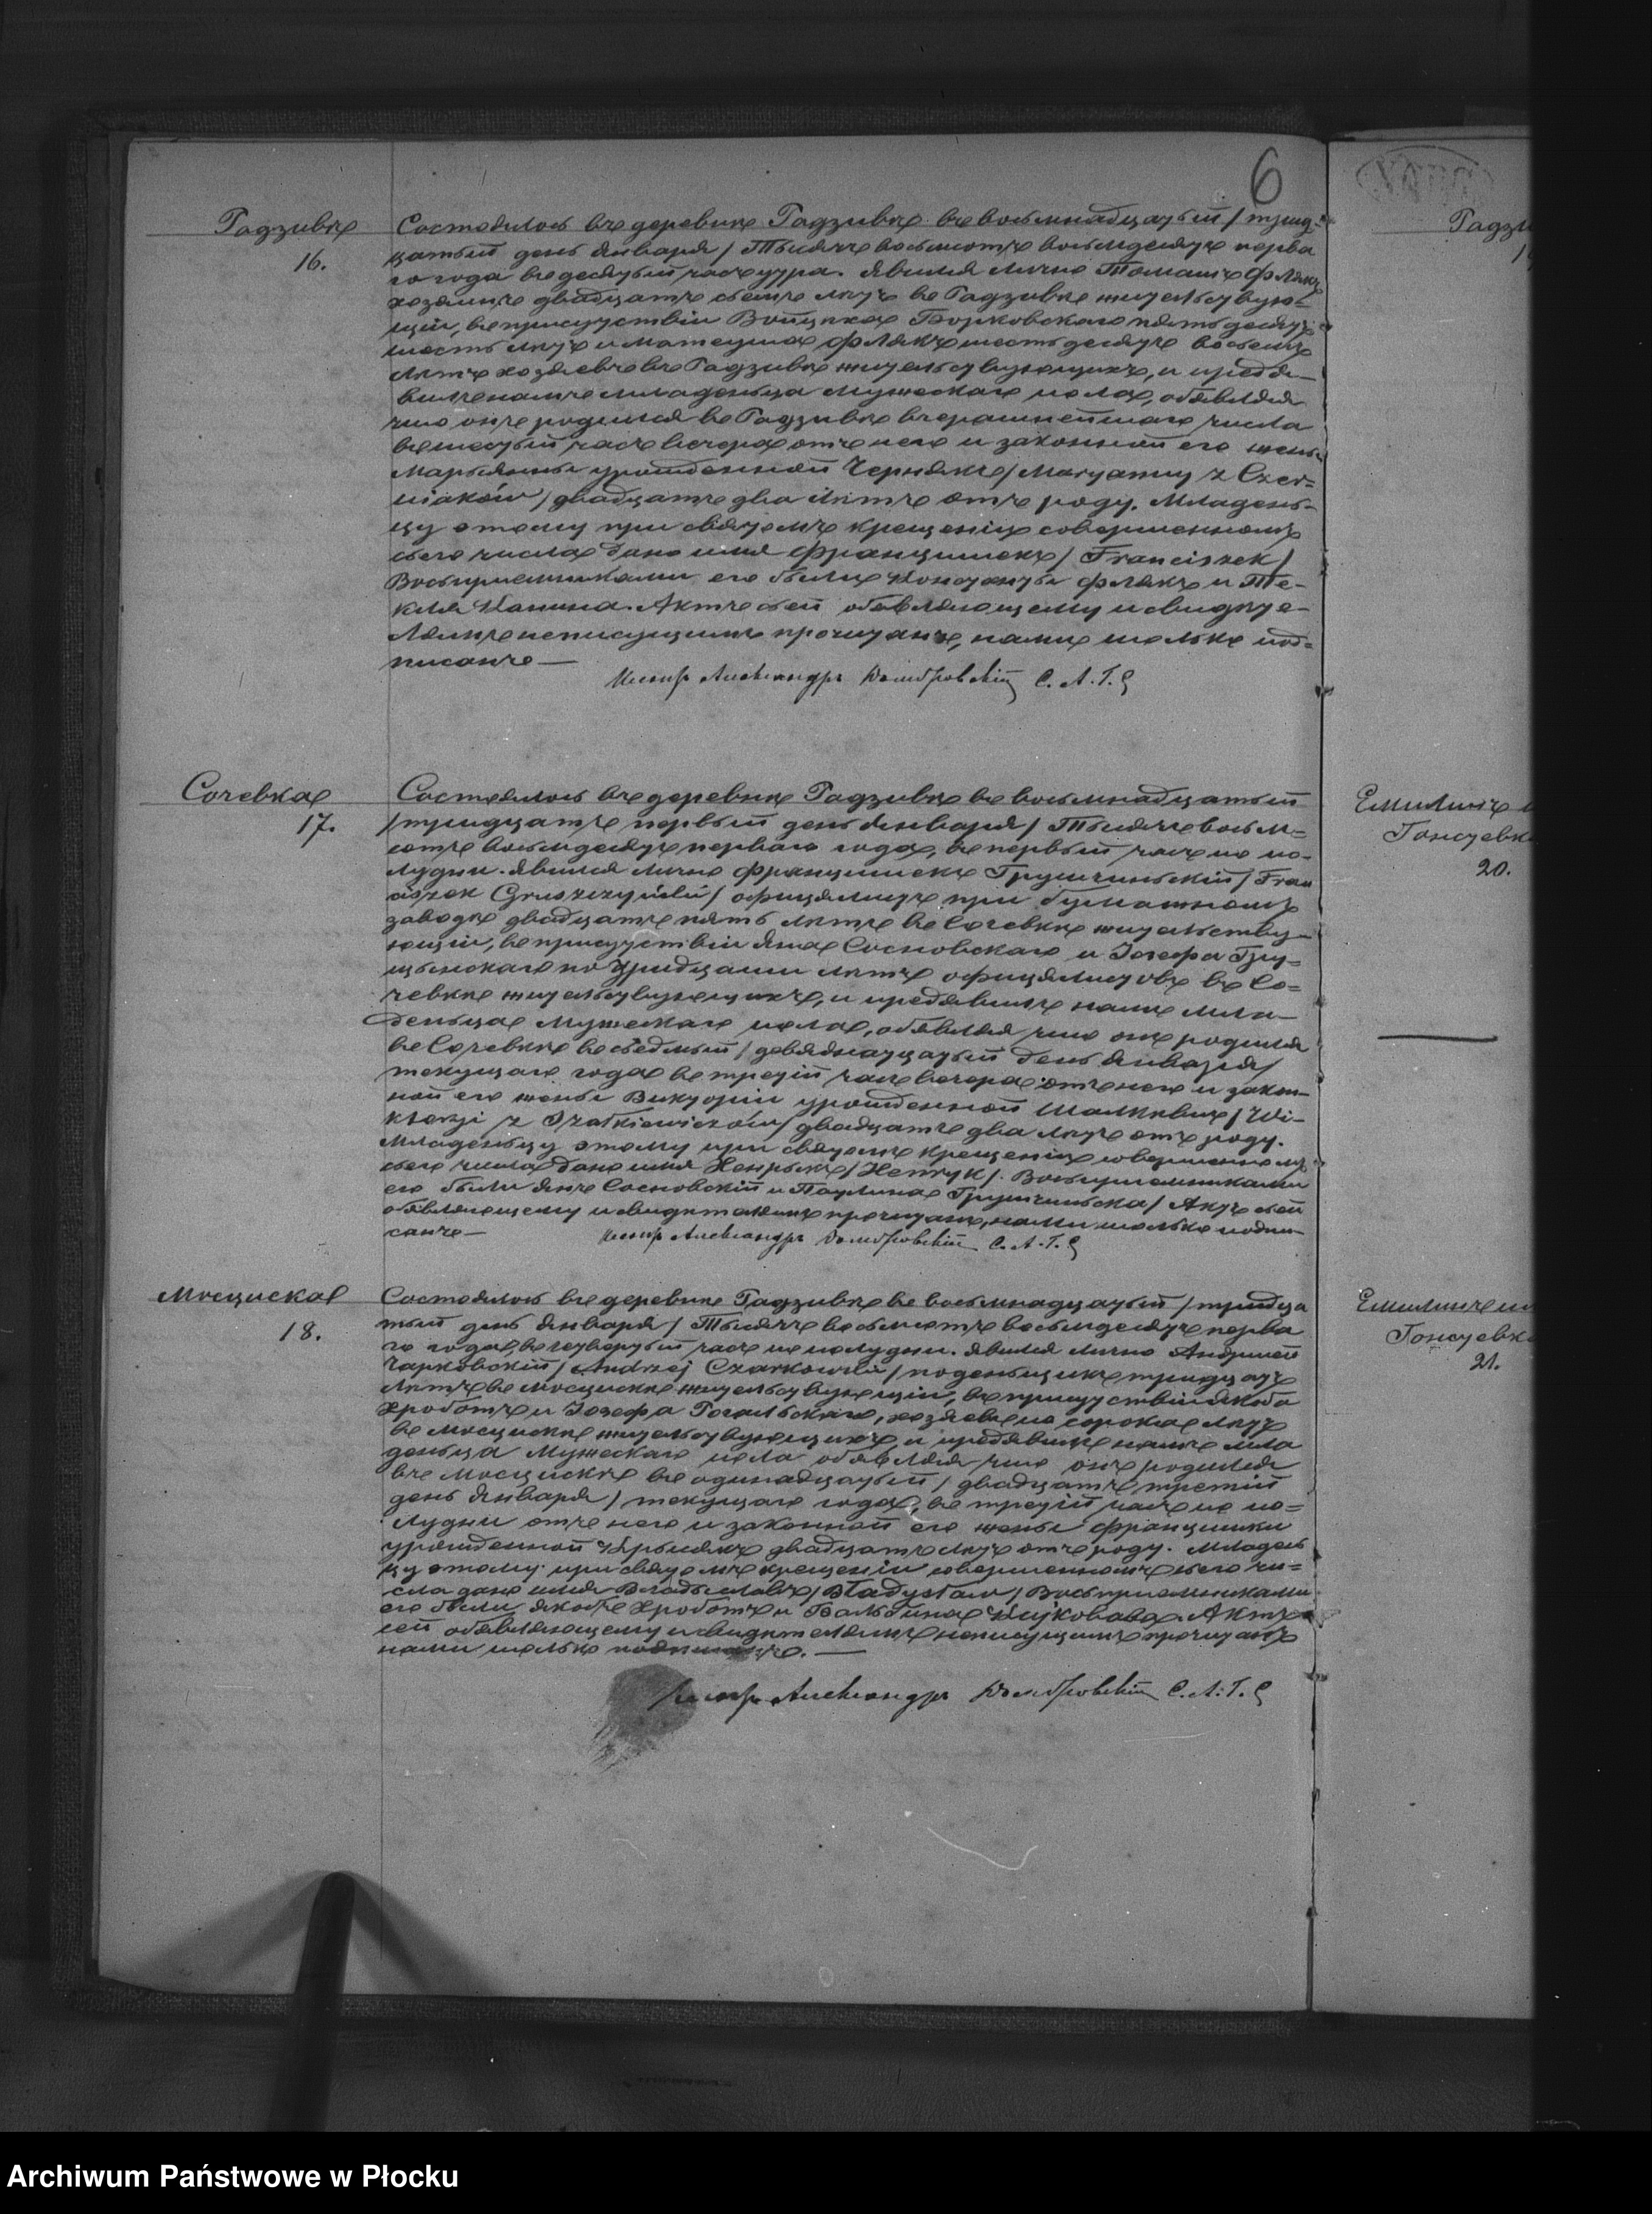 6
Гадзивѣ
16.
Состоялось въ деревнѣ Гадзивѣ въ восьмнадцатый / трид-
цатый день Января / Тысяча восьмсотъ восьмдесятъ перва
го года въ десятый часъ утра. Явился лично Томашъ Флякъ
хозяинъ двадцать семь лѣтъ въ Гадзивѣ жительствую-
щій, въ присутствіи Войцѣха Борковскаго пятьдесятъ
шесть лѣтъ и Матеуша Флякъ шестьдесятъ восемь
лѣтъ хозяевъ въ Гадзивѣ жительствующихъ, и предъя-
вилъ намъ младенца мужескаго пола, объявляя
что онъ родился въ Гадзивѣ вчерашнейшаго числа
въ шестый часъ вечера отъ него и законной его жены
Марьянны урожденной Чернякъ / Maryanny z Czer=
niaków / двадцать два лѣтъ отъ роду. Младень-
цу этому при святомъ крещеніи совершенномъ
сего числа дано имя Францишекъ / Franciszek /
Восприемниками его были Константы Флякъ и Те-
кля Канина. Актъ сей объявляющему и свидѣте-
лямъ неписущимъ прочитанъ, нами только под-
писанъ —
Ксендзъ Александръ Домбровскій С. А. Г. С
Сочевка
17.
Состоялось въ деревнѣ Гадзивѣ въ восьмнадцатый
/ тридцать первый день Января / Тысяча восьм=
сотъ восьмдесятъ перваго года, въ первый часъ по по-
лудни. Явился лично Францишекъ Грушчиньскій / Fran
ciszek Gruszczyński / офиціялистъ при бумажномъ
заводѣ двадцать пять лѣтъ въ Сочевкѣ жительству-
ющій, въ присутствіи Яна Сосновскаго и Іозефа Гру-
щынскаго по тридцати лѣтъ офиціялистовъ въ Со=
чевкѣ жительствующихъ, и предъявилъ намъ мла-
деньца мужескаго пола, объявляя что онъ родился
въ Сочевкѣ въ седмый / девятнадцатый день Января /
текущаго года въ третій часъ вечера отъ него и закон-
ной его жены Викторіи урожденной Шаткевичъ / Wi-
ktoryi z Szatkiewiczów / двадцать два лѣтъ отъ роду.
Младеньцу этому при святомъ крещеніи совершенномъ
сего числа дано имя Хенрыкъ / Henryk /. Восприемниками
его были Янъ Сосновскій и Паулина Грушчиньска / Актъ сей
объявляющему и свидѣтелямъ прочитанъ, нами только подпи-
санъ —
Ксендзъ Александръ Домбровскій С. А. Г. С
Мосциска
18.
Состоялось въ деревнѣ Гадзивѣ въ восьмнадцатый / тридца
тый день Января / Тысяча восьмсотъ восьмдесятъ перва
го года, въ четвертый часъ по полудни. Явился лично Андржей
Чарковскій / Andrzej Czarkowski / поденьщикъ тридцать
лѣтъ въ Мосцискѣ жительствующій, въ присутствіи Якоба
Хроботъ и Іозефа Рогальскаго, хозяевъ по сорока лѣтъ
въ Мосцискѣ жительствующихъ и предъявилъ намъ мла
деньца мужескаго пола объявляя что онъ родился
въ Мосцискѣ въ одинадцатый / двадцать третій
день Января / текущаго года, въ третій часъ по по=
лудни отъ него и законной его жены Францишки
урожденной Крысякъ двадцать лѣтъ отъ роду. Младень
цу этому при святомъ крещеніи совершенномъ сего чи=
сла дано имя Владыславъ / Władysław / Восприемниками
его были Якобъ Хроботъ и Бальбина Уйковова. Актъ
сей объявляющему и свидѣтелямъ неписущимъ прочитанъ
нами только подписанъ. —
Ксендзъ Александръ Домбровскій С. А. Г. С
Гадзи
Емилинъ
Гонсевк
20.
Емилинъ
Гонсевк
21.
Archiwum Państwowe w Płocku